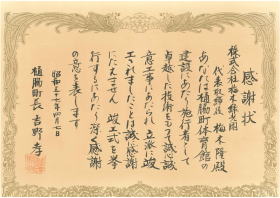 感謝状
株式会社梅木組
代表取締役 梅木隆殿
あなたは植木町体育館の
建設にあたり施行者として
卓越した技術をもって誠心誠
意工事にあたられ立派に竣
工されましたことは誠に感謝
にたえません 竣工式を挙
行するにあたり深く感謝
の意を表します
昭和五十七年四月七日
町長 吉野孝